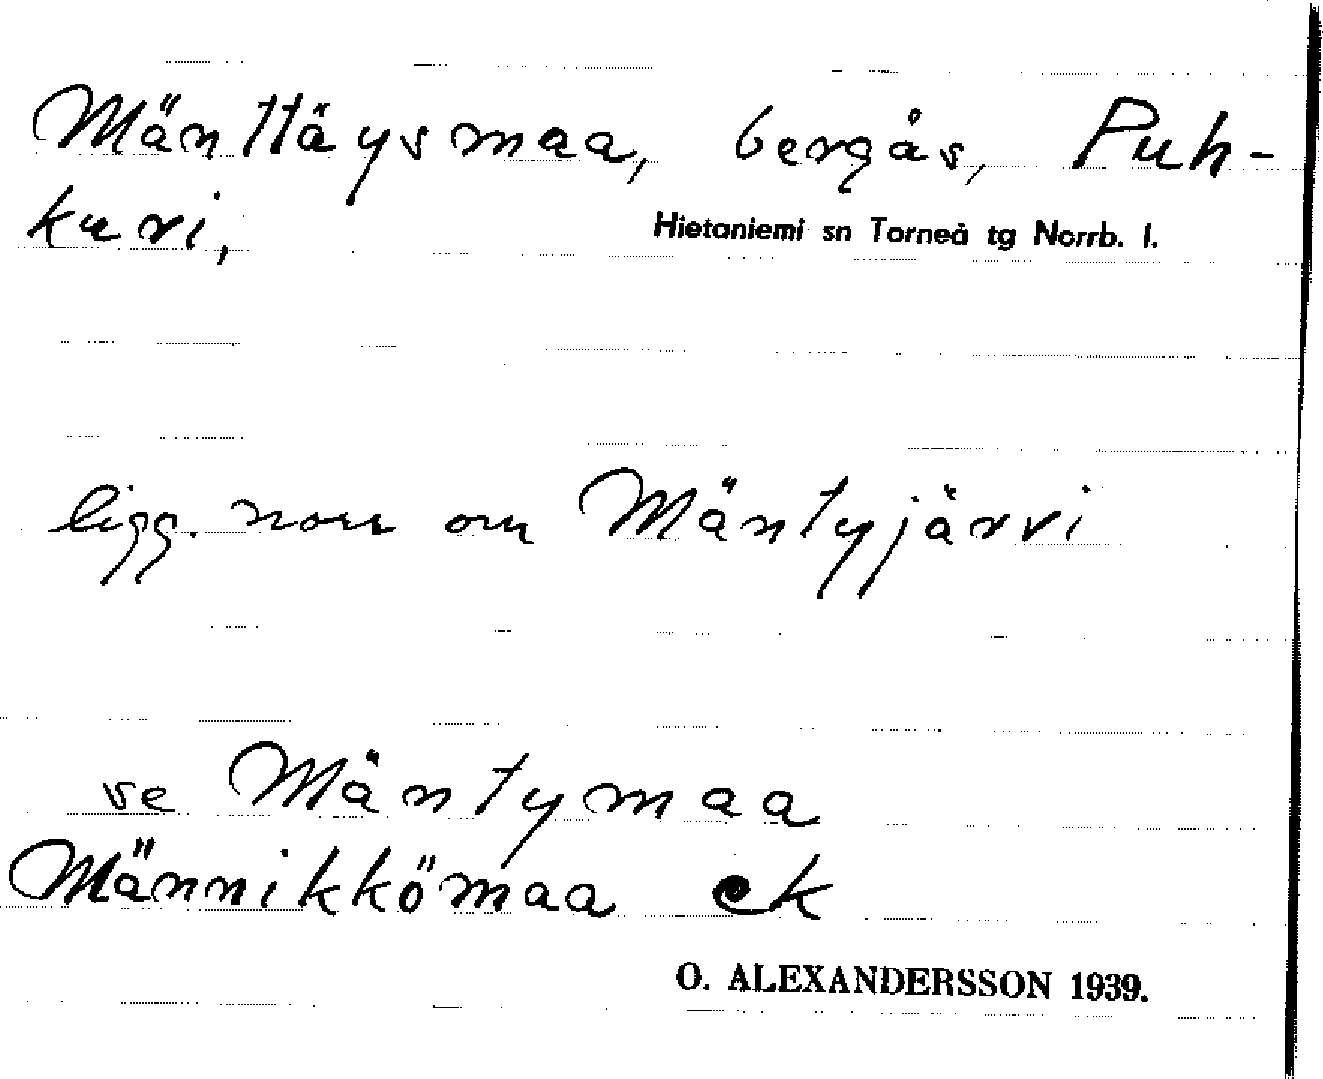 Mänttäysmaa, bergås, Puh-
kuri,
Hietaniemi sn Torneå tg Norrb. l.
ligg. norr om Mäntyjärvi
se Mäntymaa
Männikkömaa ek
O. ALEXANDERSSON 1939.